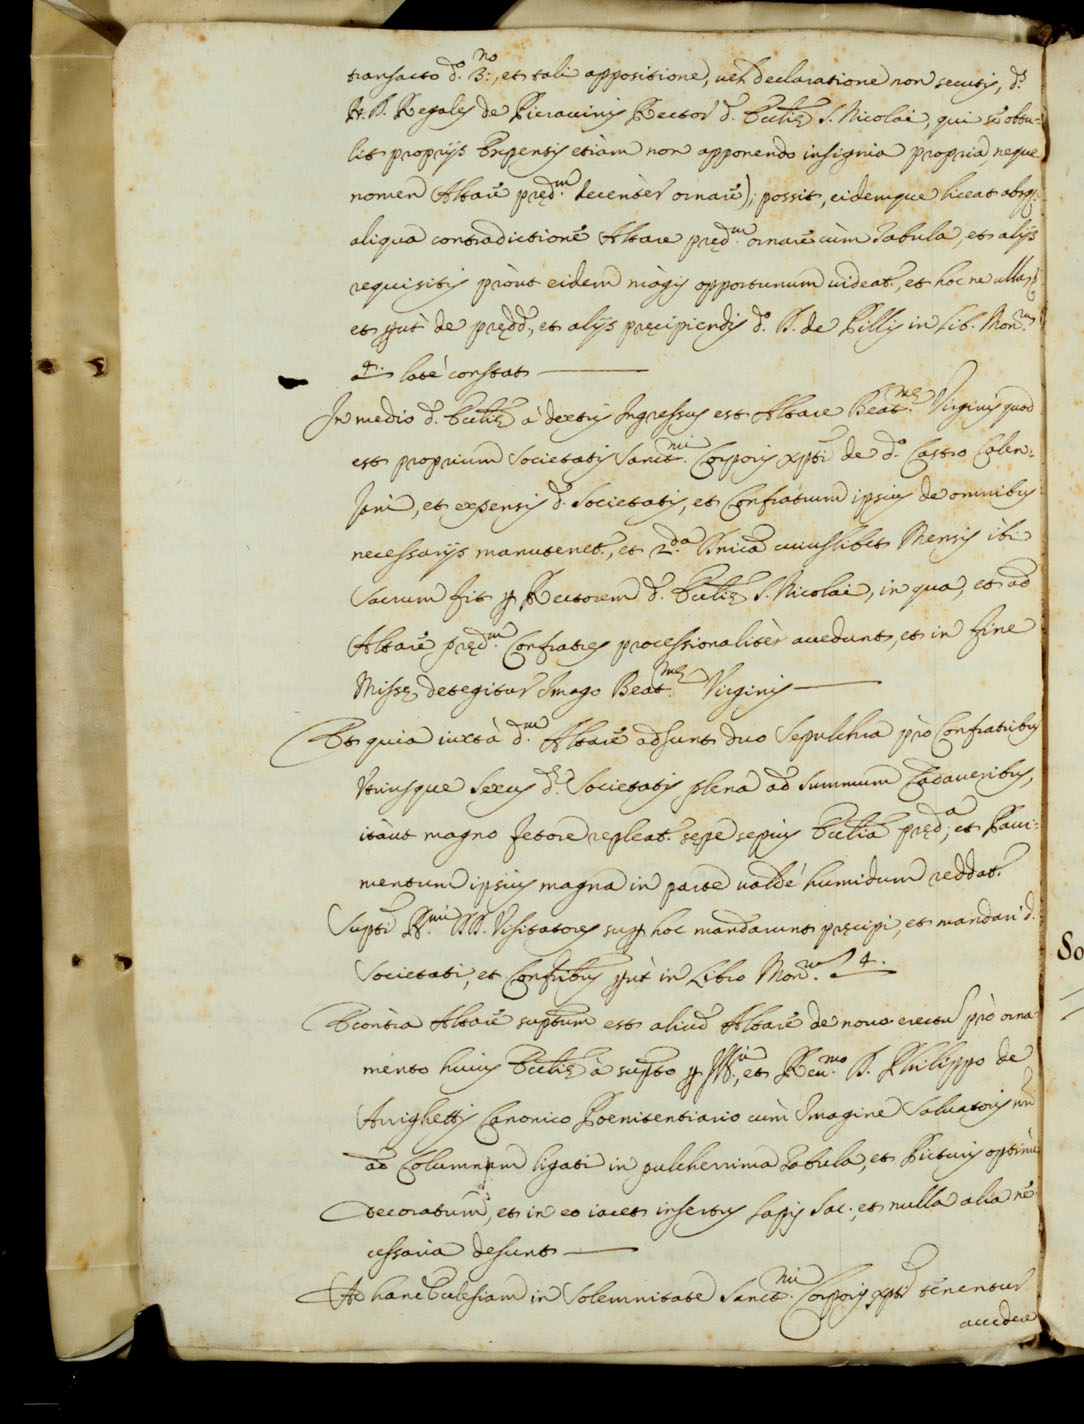 transacto d.º 3:no, et tali appositione, vel declaratione non secutis, d.s
R. D. Regalis de Pieravinis Rector d. Ecctiȩ S. Nicolai, qui se obtu-
lit proprijs Expensis etiàm non apponendo insignia propria, neque
nomen Altarè prȩd.m decentèr ornarè); possit, eidemque liceat absq;
aliqua contradictionè Altare prȩd.m ornarè cùm Tabula, et alijs
requisitis pròut eidem màgis opportunum videat.r, et hoc ne ulla
et put de prȩdd., et alijs prȩcipiendis d.º D. de Pillis in Lib. Mon.m
4. latè constat
In medio d. Ecctiȩ à dextris Ingressus est Altare Beat.mȩ Virginis quod
est proprium Societatis Sanct.mi Corporis xpti de d.º Castro Calen-
zani, et expensis d. Societatis, et Confratrum ipsius de omnibus
necessarijs manutenet.r, et 2.da Dnica cuiuslibet Mensis ibi
Sacrum fit p Rectorem d. Ecctiȩ S. Nicolai, in qua, et ad
Altarè prȩd.m Confratres processionalitèr accedunt, et in fine
Missȩ detegitur Imago Beat.mȩ Virginis
Et quia iuxtà d.m Altarè adsunt duo Sepulchra prò Confratribus
Utriusque Sexus d.ȩ Societatis plena ad summum Cadaveribus,
itàut magno fetore repleat.r sepe sepius Ecctia prȩd.a, et Pavi-
mentum ipsius magna in parte valdè humidum reddat.r
Supti R.mi DD. Visitatores sup hoc mandarunt prȩcipi, et mandari d.
Societati, et Confribus put in Libro Mon.m 4.
Econtra Altarè suptum est aliud Altarè de novo erectu prò orna
mento huius Ecctiȩ à supto p Ill., et Reu.mo D. Philippo de
Arrighettis Canonico Poenitentiario cùm Imagine Salvatoris nri
ad Columnam ligati in pulcherrima Tabula, et Picturis optimè
decoratum, et in eo iacet insertus Lapis Sac., et nulla alia ne-
cessaria desunt
Ad hanc Ecclesiam in Solemnitate Sanct.mi Corporis xpti tenentur
accedere
So